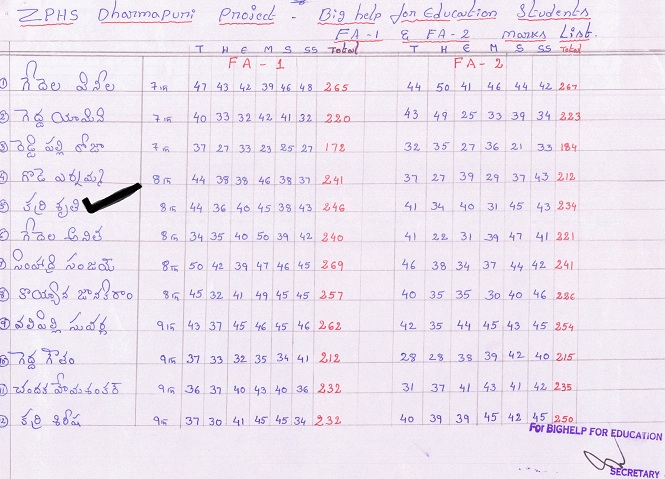 ZPHS Dharmapuri Project - Big help for Education Students
FA-1 & FA-2 marks List.
T H E M S SS Total T H E M S SS Total
FA-1 FA-2
① గేదెల వినీల 7th 47 43 42 39 46 48 265 44 50 41 46 44 42 267
② గెద్ద యామిని 7th 40 33 32 42 41 32 220 43 49 25 33 39 34 223
③ రెడ్డి పల్లి రోజా 7th 37 27 33 23 25 27 172 32 35 27 36 21 33 184
④ గొడె 8th 44 38 38 46 38 37 241 37 27 39 29 37 43 212
⑤ కర్రి శృతి 8th 44 36 40 45 38 43 246 41 34 40 31 45 43 234
⑥ గేదెల అనిత 8th 34 35 40 50 39 42 240 41 22 31 39 47 41 221
⑦ సింహాద్రి సంజయ్ 8th 50 42 39 47 46 45 269 46 38 34 37 44 42 241
⑧ కొయ్యాన జానకిరాం 8th 45 32 41 49 45 45 257 40 35 35 30 40 46 226
⑨ వలిపిల్లి సువర్ణ 9th 43 37 45 46 45 46 262 42 35 44 45 43 45 254
⑩ గెద్ద గౌతం 9th 37 33 32 35 34 41 212 28 28 38 39 42 40 215
⑪ చందక హేమశంకర్ 9th 36 37 40 43 40 36 232 31 37 41 43 41 42 235
⑫ కర్రి శిరీష 9th 37 30 41 45 45 34 232 40 39 39 45 42 45 250
For BIGHELP FOR EDUCATION
SECRETARY